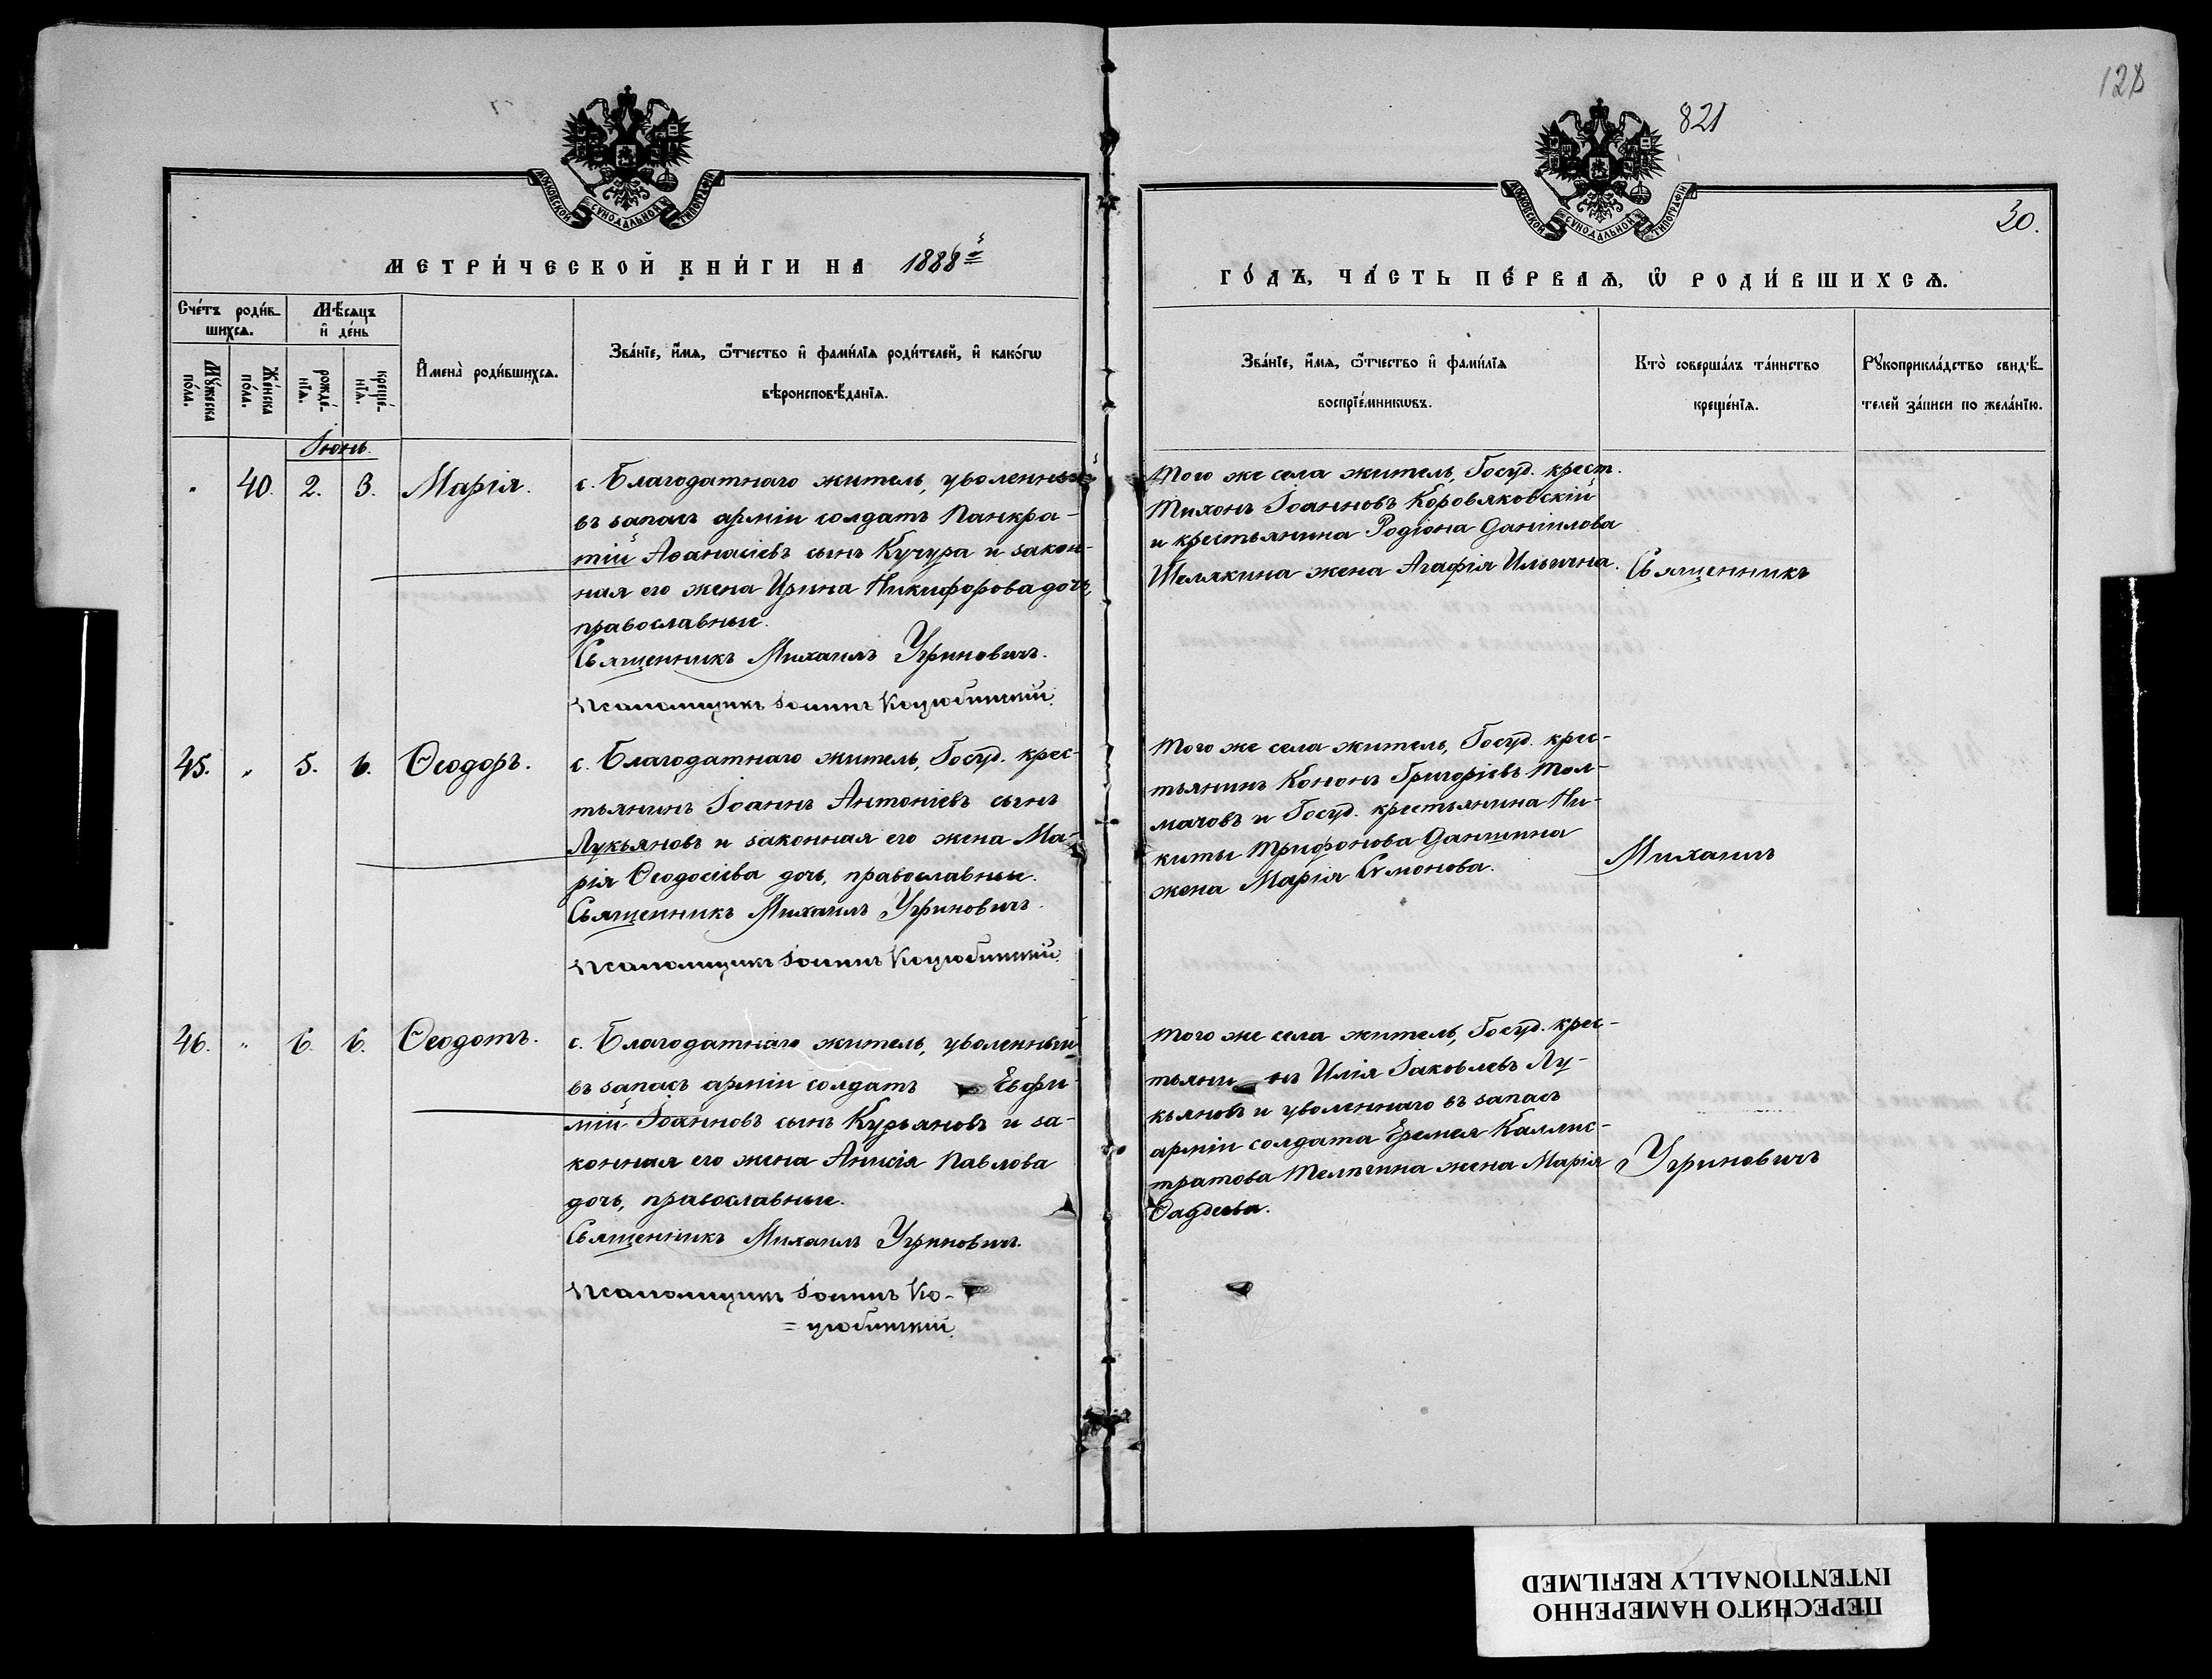 128
821
30.
МОСКОВСКОЙ СѴНОДАЛЬНОЙ ТИПОГРАФІИ
МОСКОВСКОЙ СѴНОДАЛЬНОЙ ТИПОГРАФІИ
МЕТРИ́ЧЕСКОЙ КНИ́ГИ НА 1888й
ГО́ДЪ, ЧА́СТЬ ПЕ́РВАѦ, Ѿ РОДИ́ВШИХСѦ.
Сче́тъ роди́в-
шихсѧ.
Мѣ́сяцъ
и҆ де́нь
Мꙋ́жеска
по́ла.
Же́нска
по́ла.
рожде́-
нїѧ.
креще́-
нїѧ.
И҆мена̀ роди́вшихсѧ.
Зва́нїе, и҆́мѧ, ѻ҆́тчество и҆ фами́лїѧ роди́телей, и҆ како́гѡ
вѣроисповѣ́данїѧ.
Зва́нїе, и҆́мѧ, ѻ҆́тчество и҆ фами́лїѧ
воспрїе́мникѡвъ.
Кто̀ соверша́лъ та́инство
креще́нїѧ.
Рꙋкоприкла́дство свидѣ́-
телей за́писи по жела́нїю.
Іюнь.
" 40. 2. 3. Марія.
с. Благодатнаго житель, уволенный
въ запасъ арміи солдатъ Панкра-
тій Аѳанасіевъ сынъ Кучура и закон-
ная его жена Ирина Никифорова дочь,
православные.
Священникъ Михаилъ Угриновичъ.
Псаломщикъ Іоаннъ Коцюбинскій.
Того же села житель, Госуд. крест.
Тихонъ Іоанновъ Коровяковскій
и крестьянина Родіона Даніилова
Шелякина жена Агафія Ильична.
Священникъ
45. " 5. 6. Ѳеодоръ.
с. Благодатнаго житель, Госуд. крес-
тьянинъ Іоаннъ Антоніевъ сынъ
Лукьяновъ и законная его жена Ма-
рія Ѳеодосіева дочь, православные.
Священникъ Михаилъ Угриновичъ.
Псаломщикъ Іоаннъ Коцюбинскій.
Того же села житель, Госуд. крес-
тьянинъ Кононъ Григоріевъ Тол-
мачовъ и Госуд. крестьянина Ни-
киты Трифонова Даншина
жена Марія Симонова.
Михаилъ
46. " 6. 6. Ѳеодотъ.
с. Благодатнаго житель, уволенный
въ запасъ арміи солдатъ Евфи-
мій Іоанновъ сынъ Курьяновъ и за-
конная его жена Анисія Павлова
дочь, православные.
Священникъ Михаилъ Угриновичъ.
Псаломщикъ Іоаннъ Ко-
=цюбинскій.
Того же села житель, Госуд. крес-
тьянинъ Илія Іаковлевъ Лу-
кьяновъ и уволеннаго въ запасъ
арміи солдата Еремея Каллис-
тратова Телпгина жена Марія
Ѳаддеева.
Угриновичъ
ПЕРЕСНЯТО НАМЕРЕННО
INTENTIONALLY REFILMED